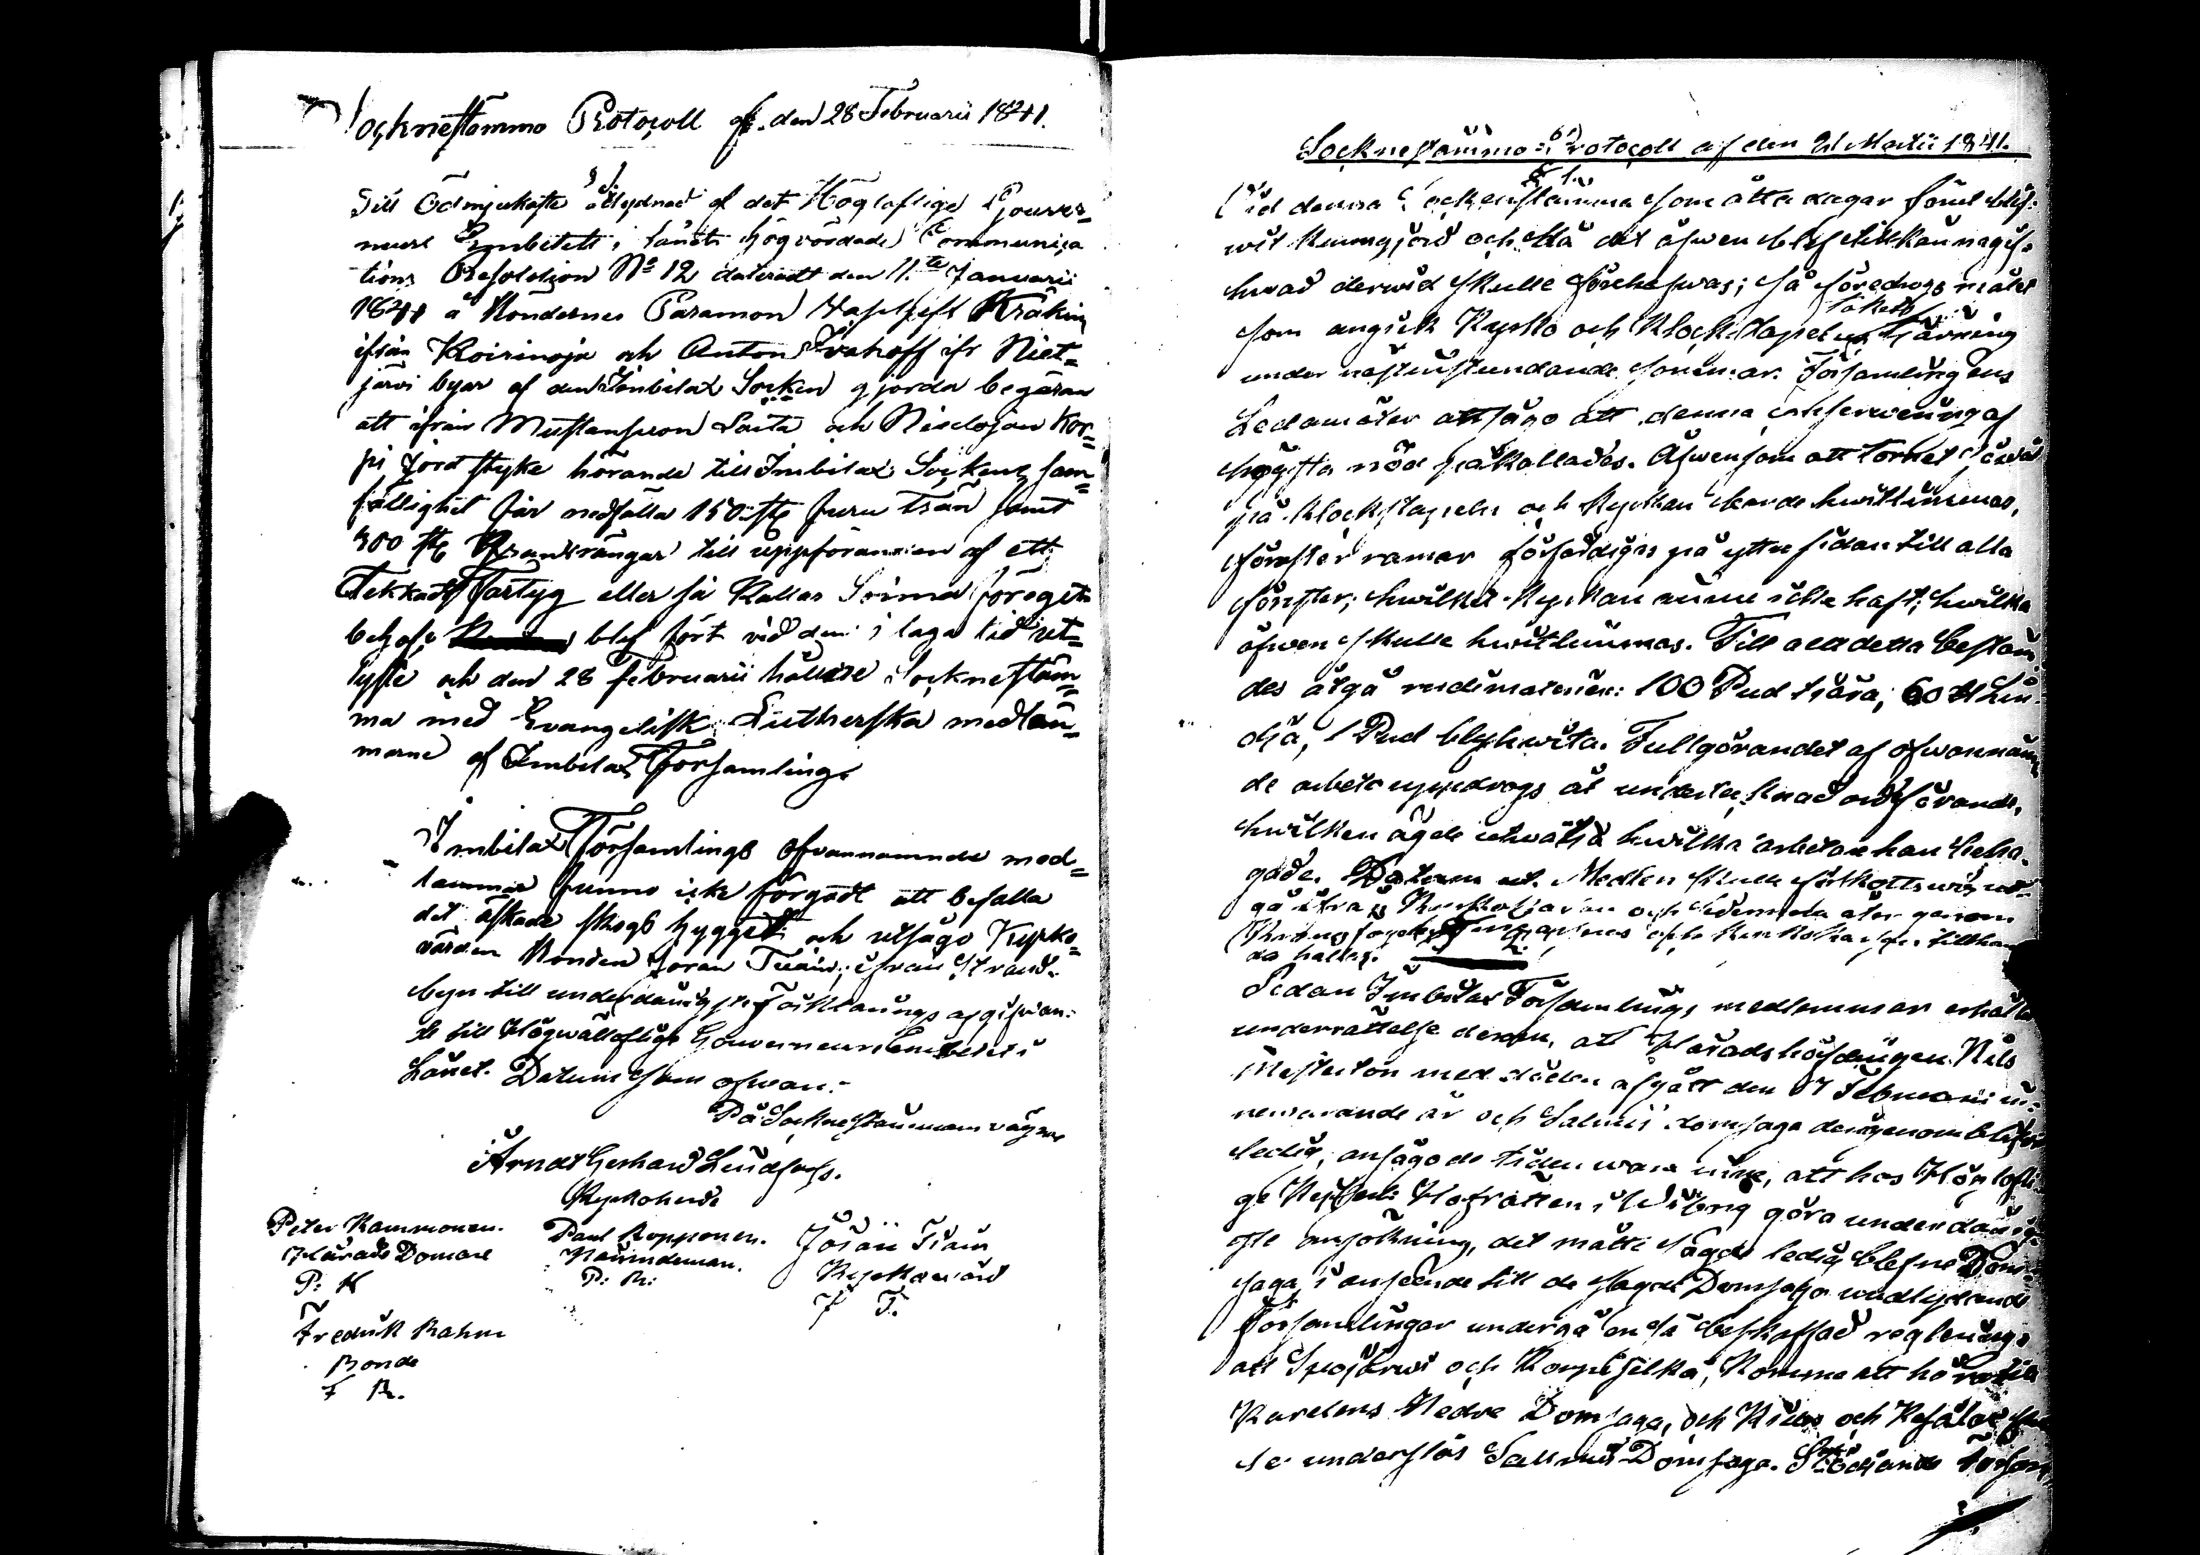 Socknestämmo Protocoll af den 28 Februarii 1841.
§ 1.
Till Ödmjukaste åtlydnad af det Höglaflige Gouver=
neurs Embetets i länets högvördade Communica
tions Resolution No 12 dateradt den 11.te Januarii
1841 å Böndernes Paramon Kräkin
ifrån Koirinoja och Anton Ivanoff ifr Niet=
järvi byar af den Imbilax Socken gjorda begäran
att ifrån Mustanssron Saita och Kor=
pi Jord styke hörande till Imbilax Sockens sam=
fällighet får nedfälla 150 st furu trän samt
300 st till uppförandet af ett
Dekkadt Fartyg eller så kallas Soima föreget
behof; blef vid den i laga tid ut=
lyste och den 28 Februarii hållne Socknestäm=
ma med Evangelisk Lutherska medläm=
marne af Imbilax Församling.
Imbilax Församlings ofvannamnde med=
lammar funno icke förgodt att befalla
det äskade skogs hygget och utsågo Kyrko=
värden Bonden Joran Tiain, ifrån Strand=
byn till underdånigste Förklarings afgifvan=
de till Högvälloflige Gouverneurs Embetet i
Länet. Datum som ofvan.
På Socknestämmans vägnar
Arndt Gerhard Lindfors.
Kyrkoherde
Peter Kammonen.
Härads Domare
P: K
Paul Ropponen.
Nämndeman.
P: R:
Jöran Tiain
Kyrkovärd
J T.
Fredrik Rahm
Bonde
F R.
Socknestämmo=Protocoll af den 21 Martii 1841.
§ 1.
Vid denna Sockenstämma som åtta dagar förut blif=
wit kunngjord och då det äfwen blef tillkännagif=
hwad derwid skulle förehafwas; så föredrogs målet
som angick Kyrko och Klock Stapel takets Tjärning
under nästinstundande sommar. Församlingens
Ledamöter ansågo att denna conserwering af
högsta nöd påkallades. Äfwensom att tornet såwäl
på klockstapeln och Kyrkan borde hwitlimmas,
fönster ramar förfärdigas på yttre sidan till alla
fönster; hwilket Kyrkan ännu icke haft; hwilka
äfwen skulle hwitlimmas. Till allt detta bestäm
des åtgå rudimaterier: 100 Pud tjära, 60 Lin=
olja, 1 Pud blyhwita. Fullgörandet af ofwannäm
de arbete uppdrogs åt undertecknad ordförande,
hwilken ägde utwälja hwilka arbetare han beha=
gade. Medlen skulle förskottswis ut=
gå ifrån Kyrkokassan och sedermera åter genom
och Kyrkokassan tillhan
da hållas.
Sedan Imbilax Församlings medlemmar erhållit
underrättelse derom, att Häradshöfdingen Nils
med döden afgått den 17 Februarii in=
newarande år och Salmis domsaga derigenom blifvit
ledig, ansågo de tiden wara inne, att hos Höglofli=
ge Kejserl: Hofrätten i Wiborg göra underdånig
ste ansökning, det måtte sagde ledig blefne Dom=
saga i anseende till de sagde Domsaga wadlydande
Församlingar undergå en så beskaffad reglering;
att Suojärwi och Korpiselkä, komme att höra till
Karelens Nedre Domsaga, och Kides och Kesälax
le underslås Salmis Domsaga. Församl